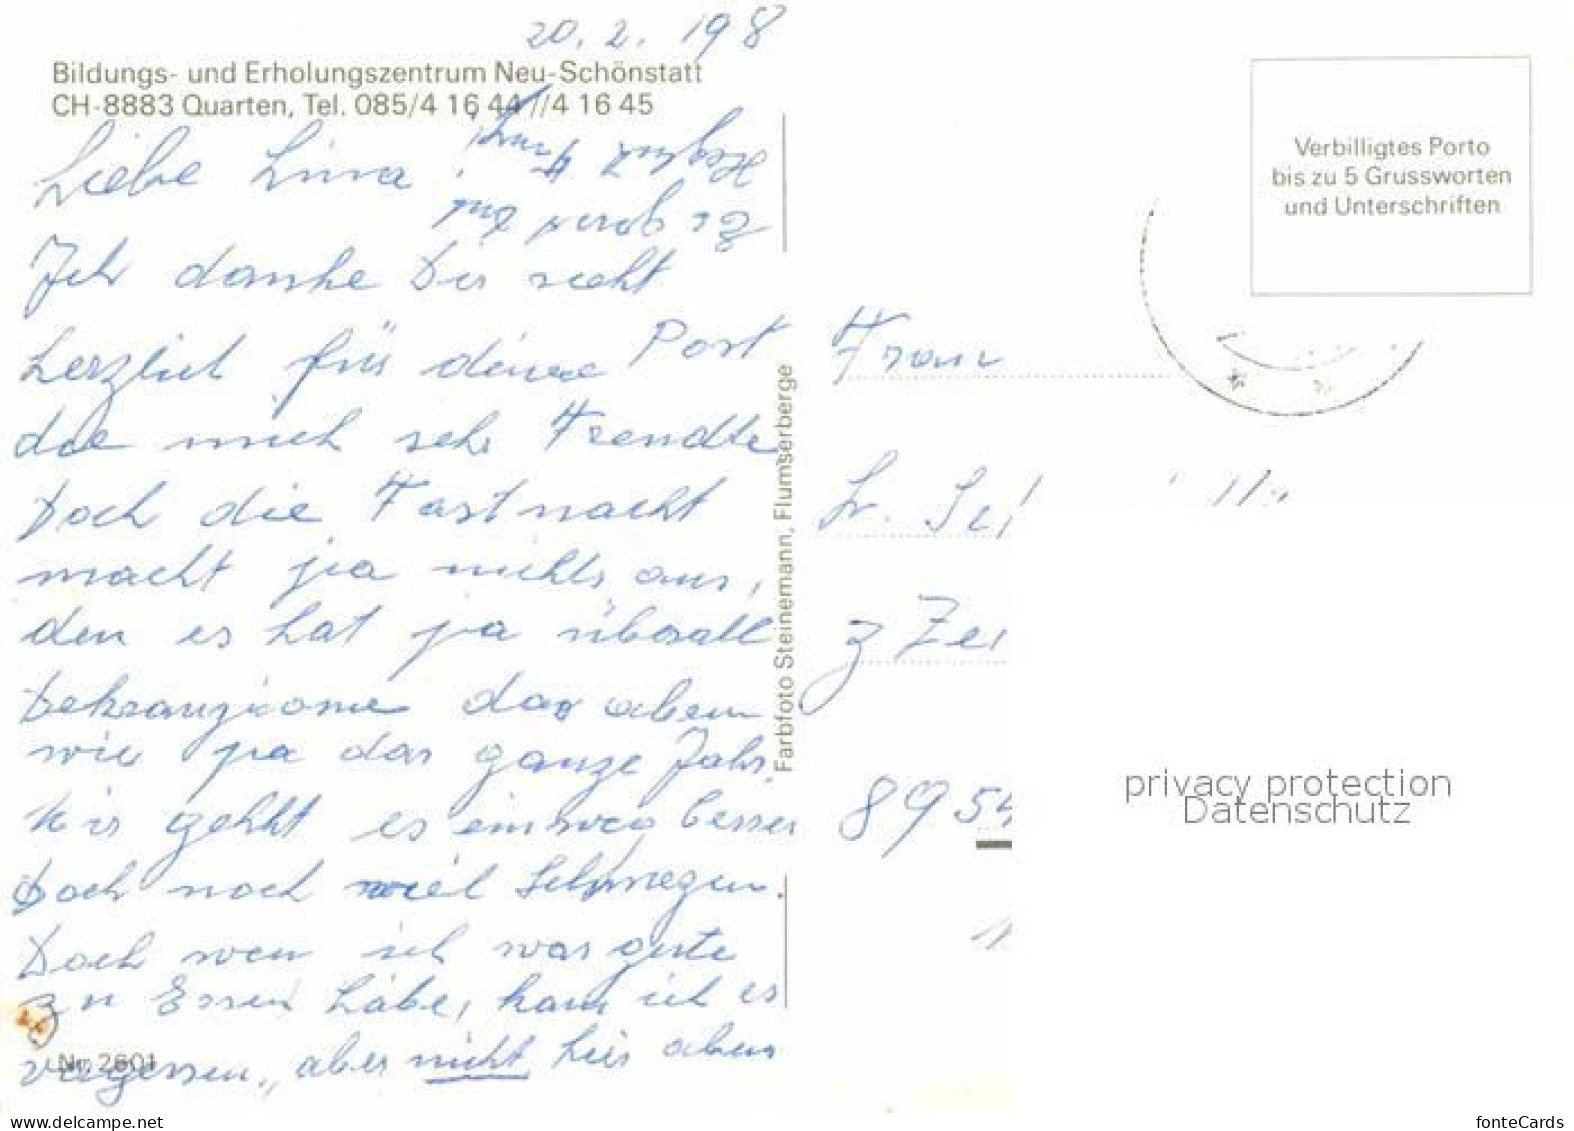 20. 2. 198
Bildungs- und Erholungszentrum Neu-Schönstatt
CH-8883 Quarten, Tel. 085/4 16 44 //4 16 45
Liebe Lina!
Ich danke Dir recht
herzlich für deine Post
die mich sehr Freudte
Doch die Fastnacht
macht jia nichts aus,
den es hat ja überall
das oben
wie ja das ganze Jahr.
Mir gehht es einweg besser
Doch noch viel Schmezen.
Doch wen ich was gute
zu Essen habe, kann ich es
vergessen, aber nicht hier oben
Es grüsst Dich
Nr. 2601
Farbfoto Steinemann, Flumserberge
Verbilligtes Porto
bis zu 5 Grussworten
und Unterschriften
Frau
z Zei
895
privacy protection
Datenschutz
www.delcampe.net
fonteCards